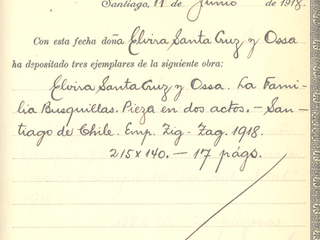 Santiago, 11 de Junio de 1918.
Con esta fecha doña Elvira Santa Cruz y Ossa
ha depositado tres ejemplares de la siguiente obra:
Elvira Santa Cruz y Ossa. La Fami-
lia Busquillas. Pieza en dos actos. — San-
tiago de Chile. Emp. Zig-Zag. 1918.
215 x 140. — 17 págs.